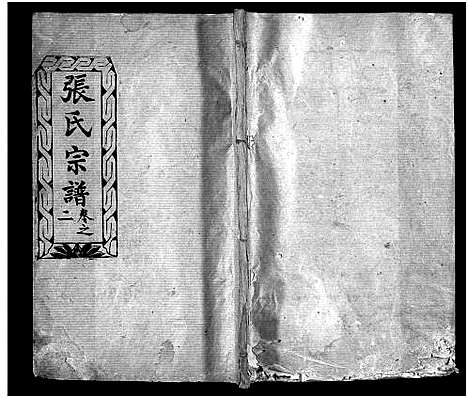 張氏宗譜
卷之二